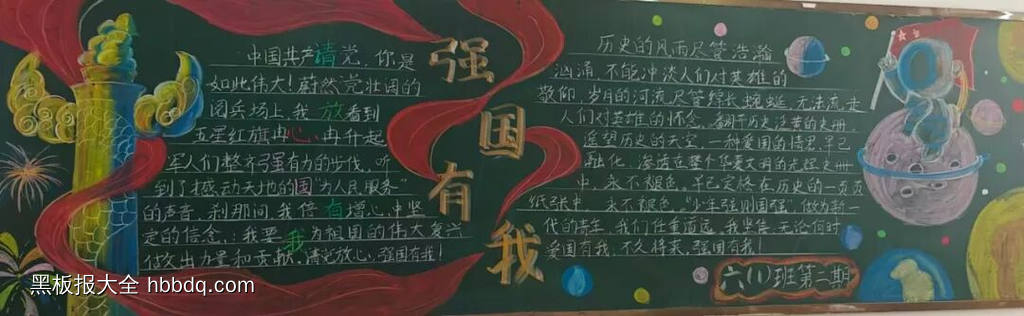 中国共产请党，你是
如此伟大！蔚然壮国的
阅兵场上，我放看到
五星红旗冉心冉升起
军人们整齐强有力的步伐，听
到了感动天地的国为人民服务
的声音，刹那间，我倍有增心中坚
定的信念，我要我为祖国的伟大复兴
做出力量和贡献，请党放心，强国有我！
强
国
有
我
历史的风雨尽管浩瀚
汹涌，不能冲淡人们对英雄的
敬仰，岁月的河流尽管绵长、蜿蜒，无法流走
人们对英雄的怀念，翻开历史泛黄的史册，
遥望历史的天空，一种爱国的情早已
融化
中，永不褪色，早已定格在历史的一页页
纸张中，永不褪色，“少年强则国强”，做为新一
代的我们任重道远，我坚信，无论何时
爱国有我，不久将来，强国有我！
六(1)班第二期
黑板报大全 hbbdq.com